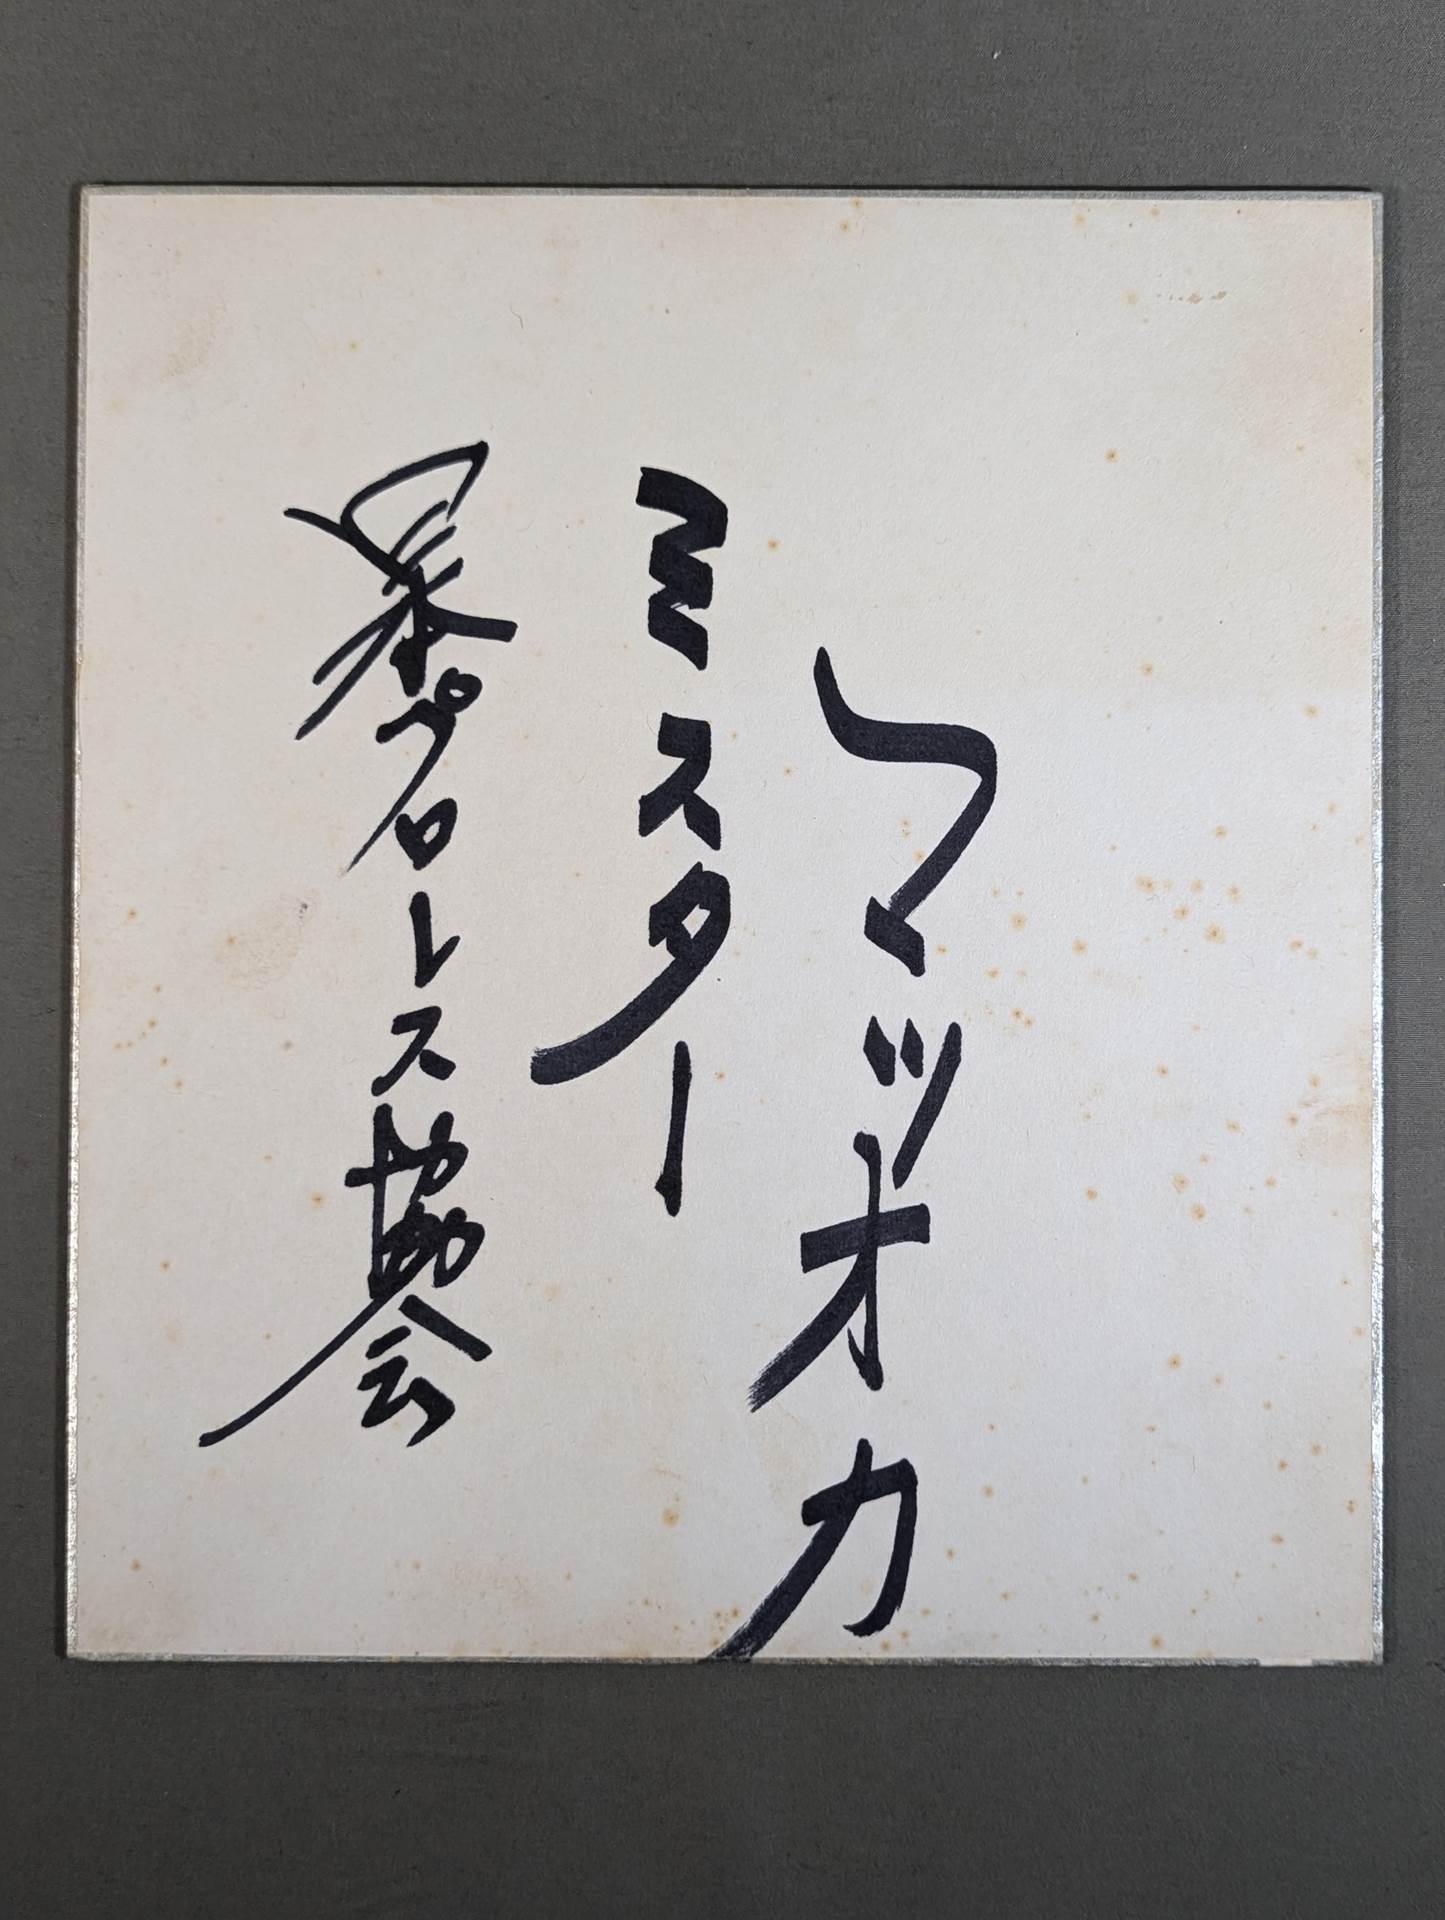 マツオカ
ミスター
暴プロレス協会